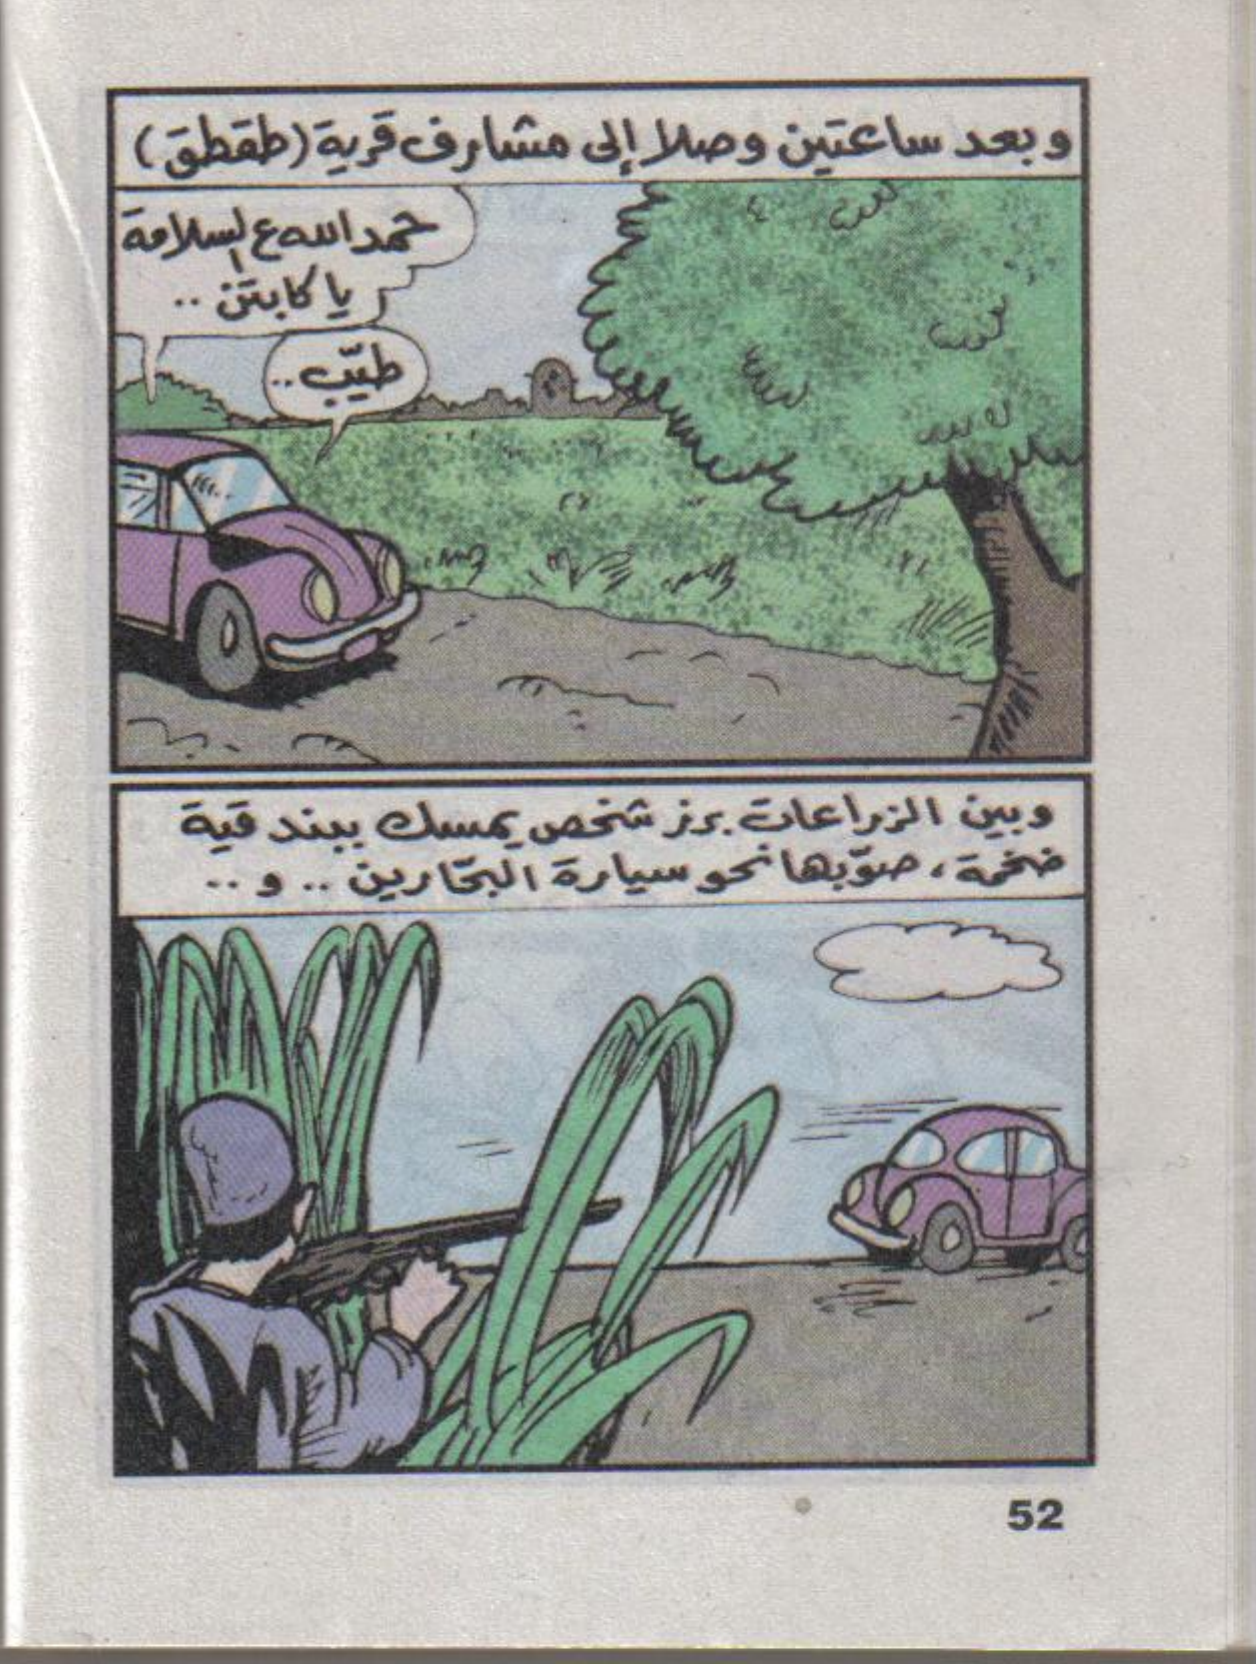 وبعد ساعتين وصلا إلى مشارف قرية (طقطق)
حمدالله ع السلامة
يا كابتن ..
طيّب ..
وبين الزراعات برز شخص يمسك ببندقية
ضخمة، صوّبها نحو سيارة البحّارين .. و ..
52